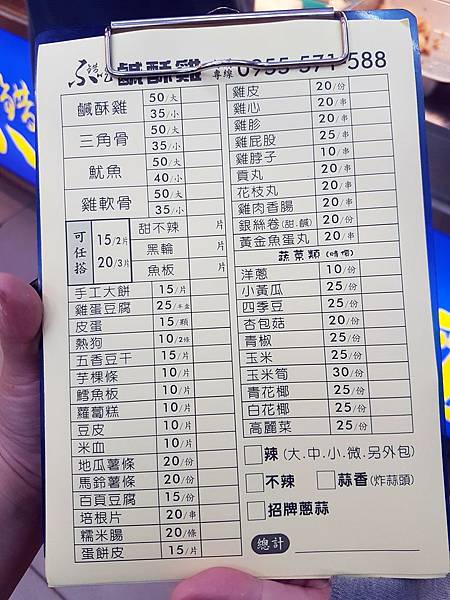 鹹酥雞 專線 0955-571-588
鹹酥雞 50/大 35/小
三角骨 50/大 35/小
魷魚 50/大 40/小
雞軟骨 50/大 35/小
可任搭 15/2片 20/3片
甜不辣 片
黑輪 片
魚板 片
手工大餅 15/片
雞蛋豆腐 25/半盒
皮蛋 15/顆
熱狗 10/2條
五香豆干 15/片
芋粿條 10/片
鱈魚板 10/片
蘿蔔糕 10/片
豆皮 10/片
米血 10/片
地瓜薯條 20/份
馬鈴薯條 20/份
百頁豆腐 15/份
培根片 20/串
糯米腸 20/條
蛋餅皮 15/片
雞皮 20/份
雞心 20/串
雞胗 20/串
雞屁股 25/串
雞脖子 10/串
貢丸 20/串
花枝丸 20/串
雞肉香腸 20/串
銀絲卷(甜.鹹) 20/份
黃金魚蛋丸 20/串
蔬菜類(時價)
洋蔥 10/份
小黃瓜 25/份
四季豆 25/份
杏包菇 20/份
青椒 25/份
玉米 25/份
玉米筍 30/份
青花椰 25/份
白花椰 25/份
高麗菜 25/份
辣(大.中.小.微.另外包)
不辣 蒜香(炸蒜頭)
招牌蔥蒜
總計